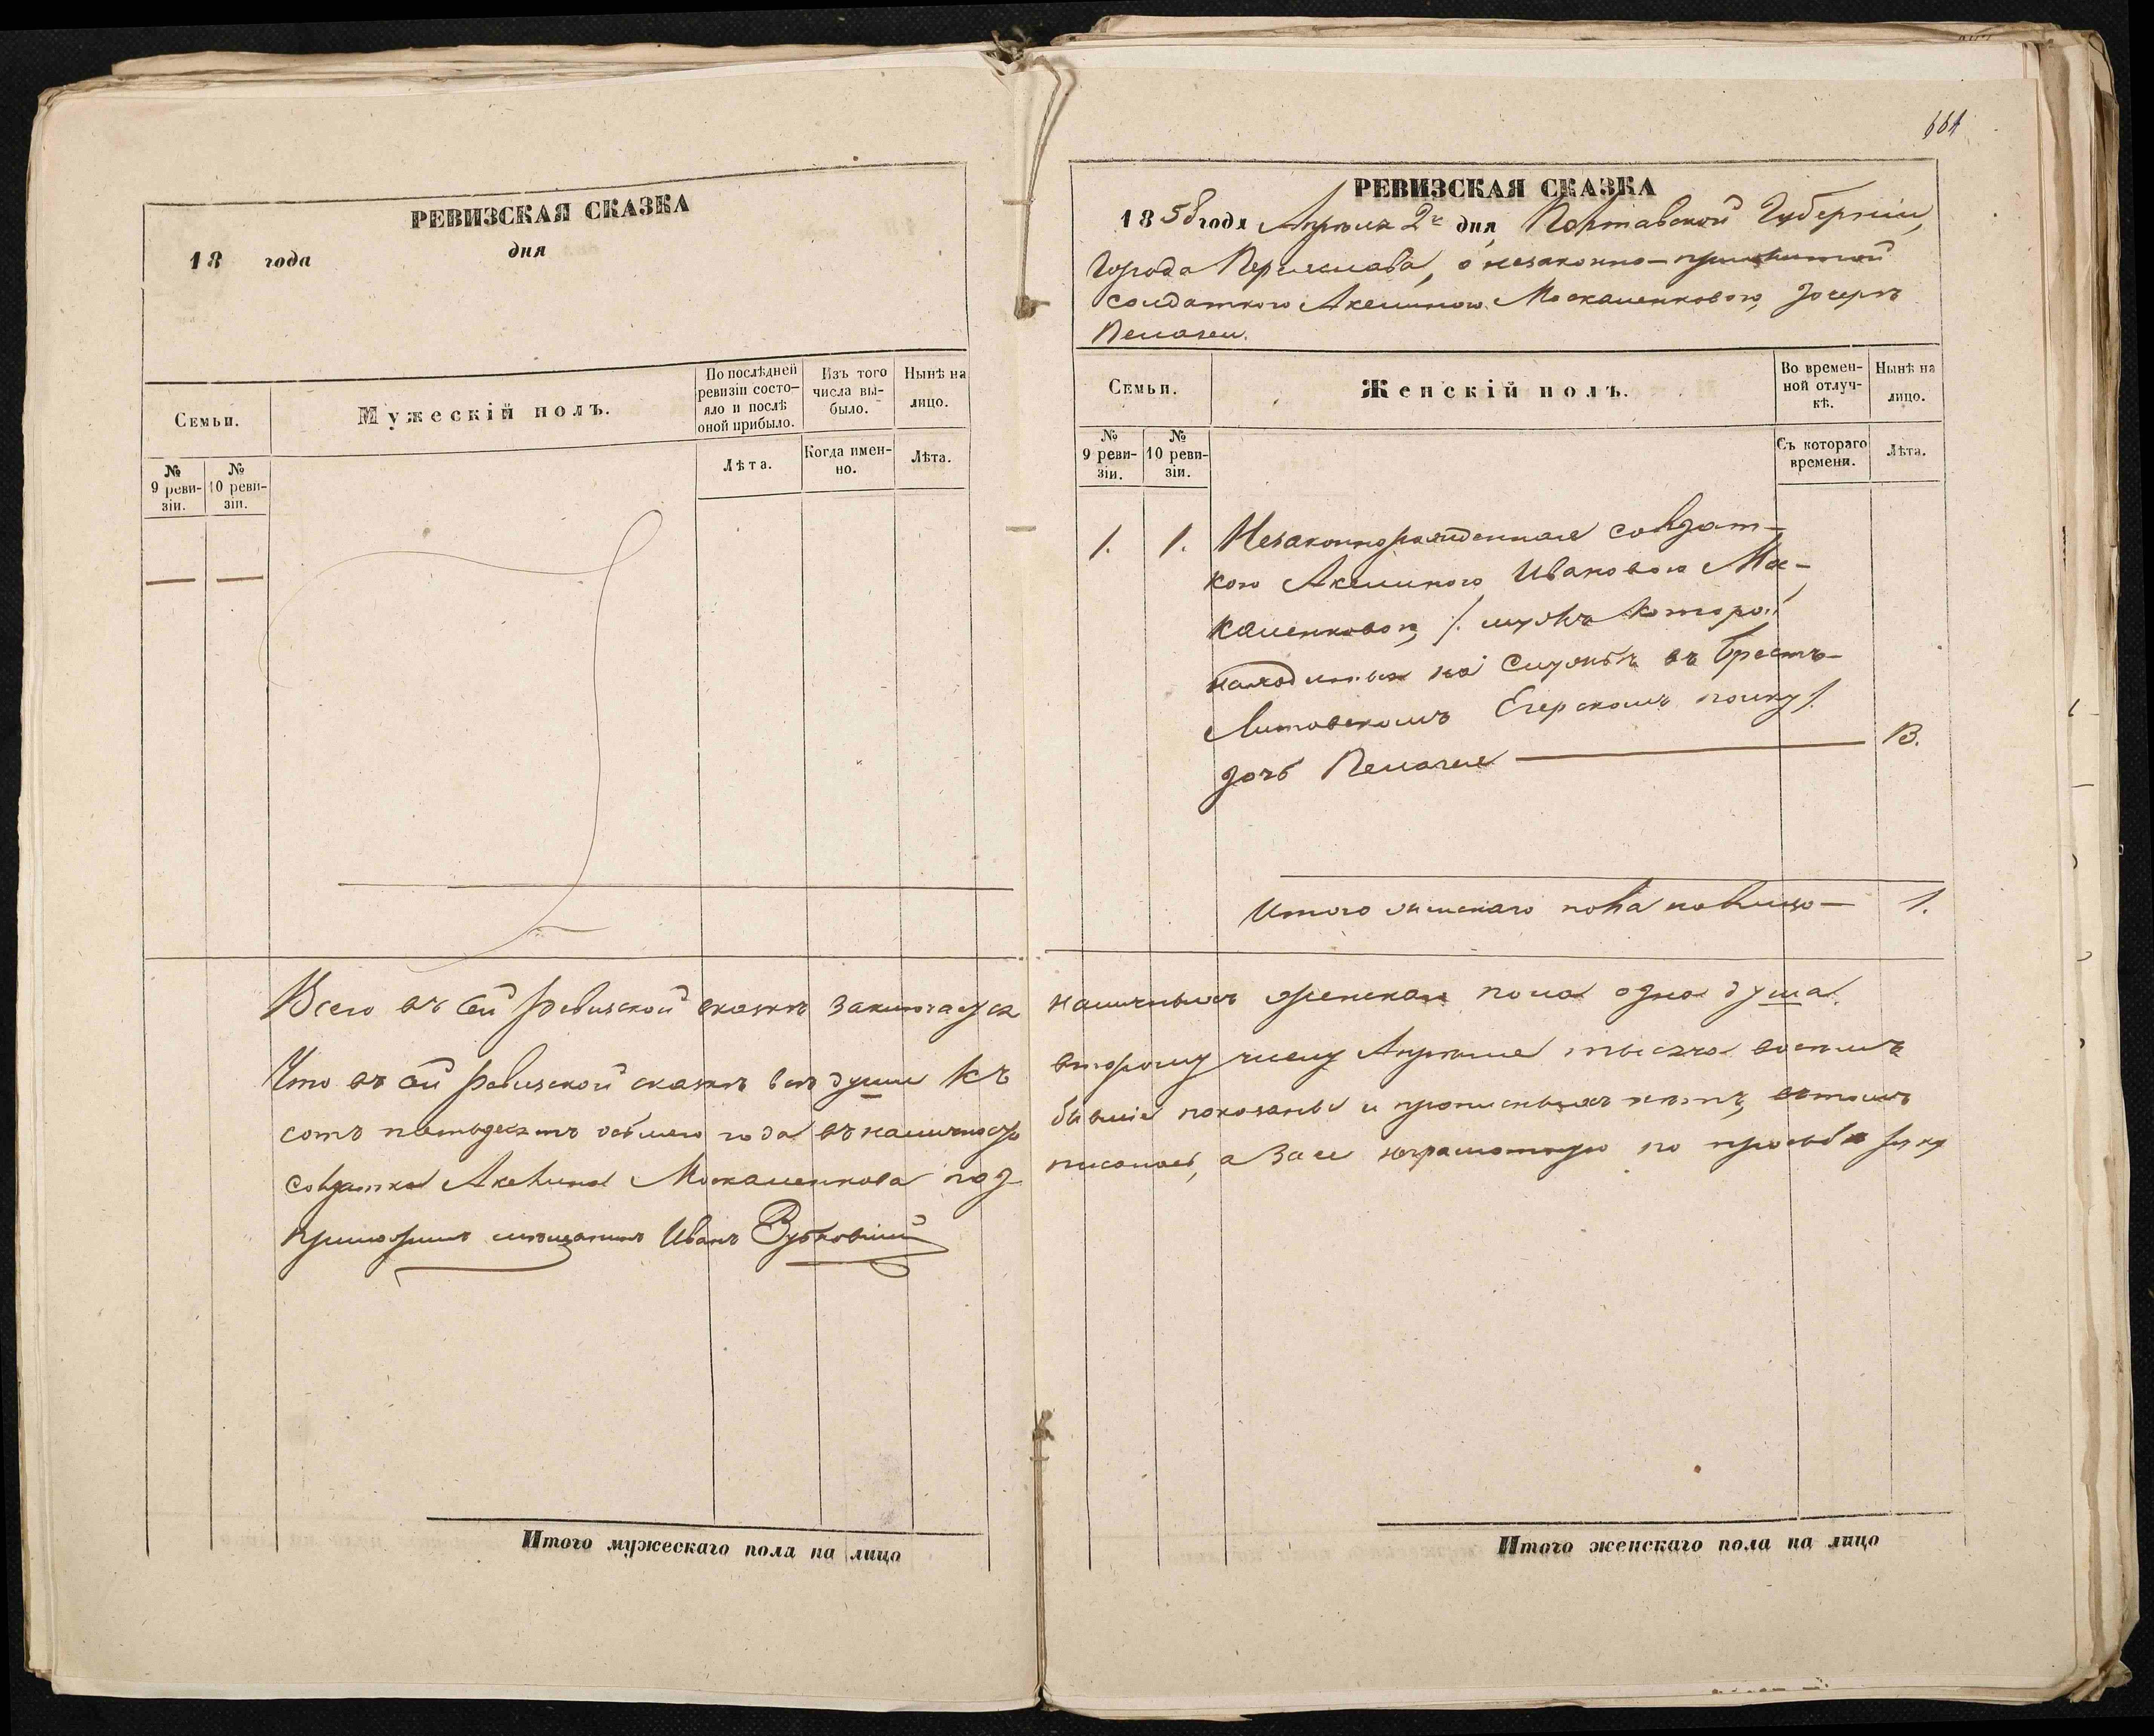 РЕВИЗСКАЯ СКАЗКА
18 года дня
Семьи.
Мужескій полъ.
По послѣдней ревизіи состояло и послѣ оной прибыло.
Изъ того числа выбыло.
Нынѣ на лицо.
№ 9 ревизіи.
№ 10 ревизіи.
Лѣта.
Когда именно.
Лѣта.
Всего въ сей ревизской сказкѣ заключается
Что въ сей ревизской сказкѣ всѣ души къ
сотъ пятьдесятъ осьмаго года въ наличности
солдатка Акелина Москаленкова под
мѣщанинъ Иванъ Зубковскій
Итого мужескаго пола на лицо
661
РЕВИЗСКАЯ СКАЗКА
1858 года Апрѣля 2 дня, Полтавской Губерніи,
Города Переяслава, о незаконно-прижитой
солдаткою Акелиною Москаленковою, дочерѣ
Пелагеи.
Семьи.
Женскій полъ.
Во временной отлучкѣ.
Нынѣ на лицо.
№ 9 ревизіи.
№ 10 ревизіи.
Съ котораго времени.
Лѣта.
1. 1. Незаконнорожденная солдат-
кою Акелиною Ивановою Мос-
каленковою, /. мужъ которой
находится на службѣ въ Брестъ-
Литовскомъ Егерскомъ полку /.
дочь Пелагея — 13.
Итого женскаго пола налицо — 1.
наличныхъ женскаго пола одна душа.
второму числу Апрѣля тысяча восемь
бывшіе показаны и прописныхъ нѣтъ, въ томъ
писалась, а за ее неграмотную по прозьбѣ руку
Итого женскаго пола на лицо